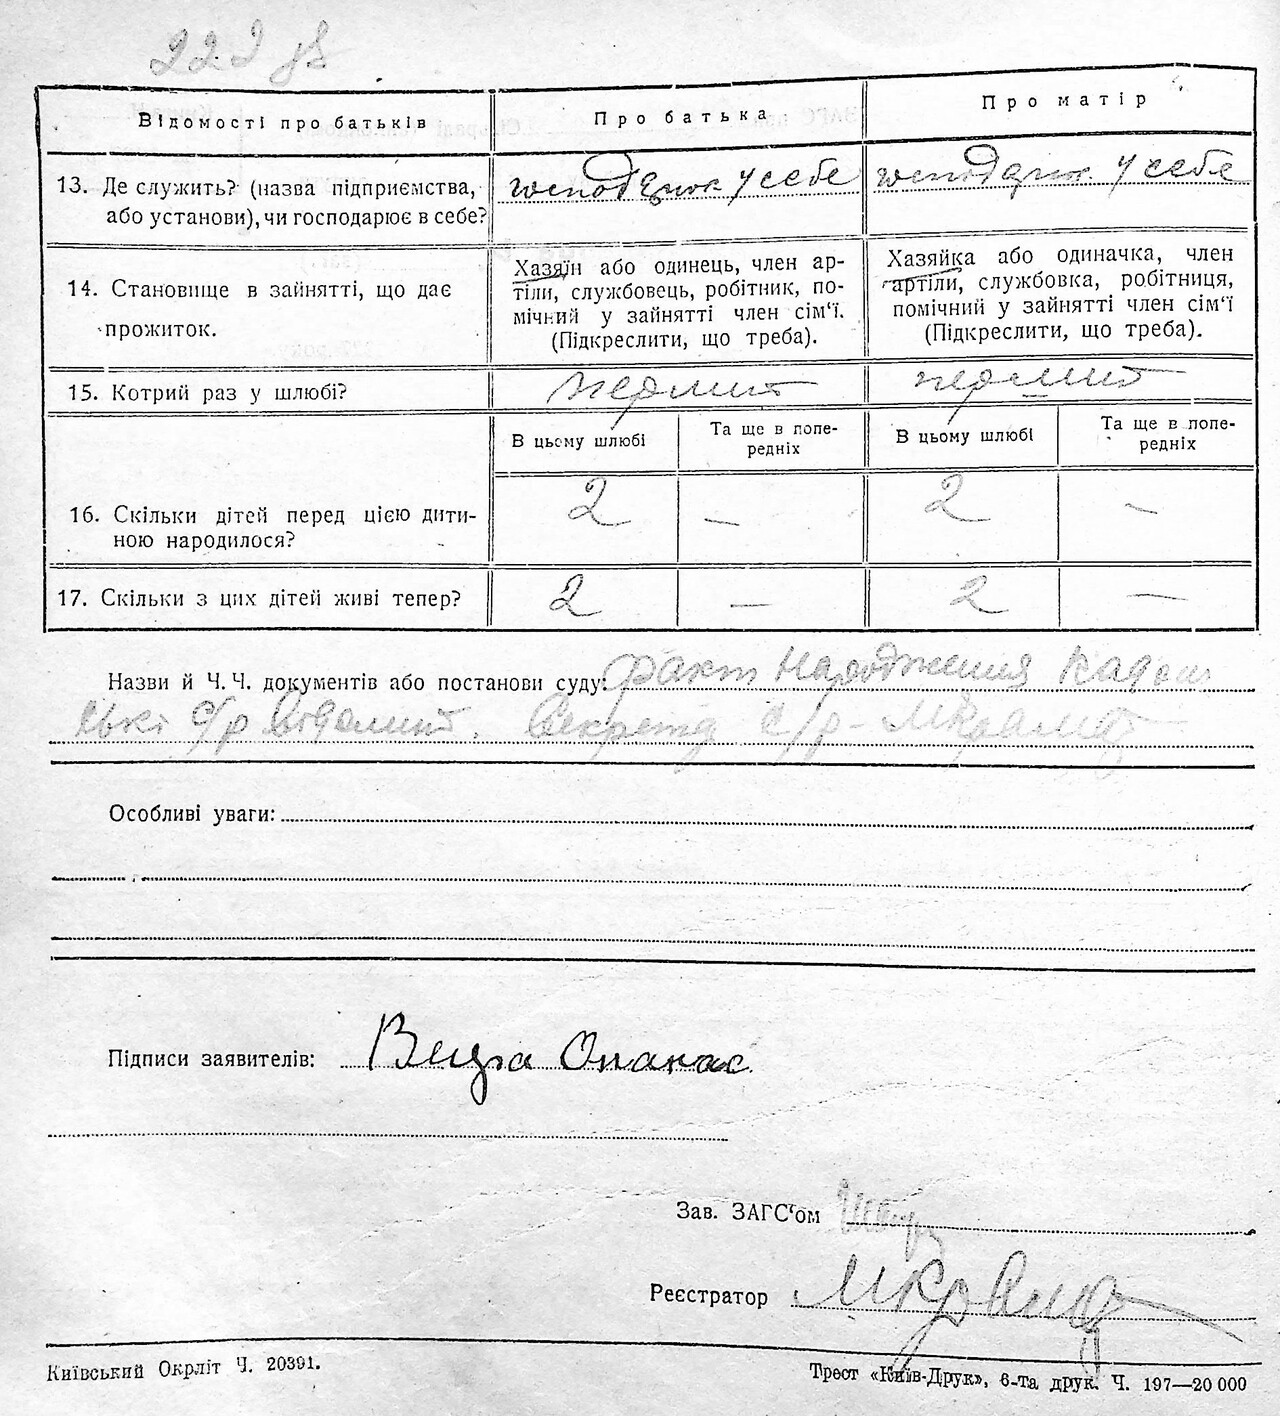 222 зв
Відомості про батьків
Про батька
Про матір
13. Де служить? (назва підприємства,
або установи), чи господарює в себе?
у себе
у себе
14. Становище в зайнятті, що дає
прожиток.
Хазяїн або одинець, член ар-
тіли, службовець, робітник, по-
мічний у зайнятті член сім'ї.
(Підкреслити, що треба).
Хазяйка або одиначка, член
артіли, службовка, робітниця,
помічний у зайнятті член сім'ї
(Підкреслити, що треба).
15. Котрий раз у шлюбі?
первий
первий
В цьому шлюбі
Та ще в попе-
редніх
В цьому шлюбі
Та ще в попе-
редніх
16. Скільки дітей перед цією дити-
ною народилося?
2 — 2 —
17. Скільки з цих дітей живі тепер?
2 — 2 —
Назви й Ч. Ч. документів або постанови суду: факт народження
с/р відомий. Секретар с/р -
Особливі уваги:
Підписи заявителів: Опанас
Зав. ЗАГС'ом
Реєстратор
Київський Окрліт Ч. 20391.
Трест «Київ-Друк», 6-та друк. Ч. 197—20 000